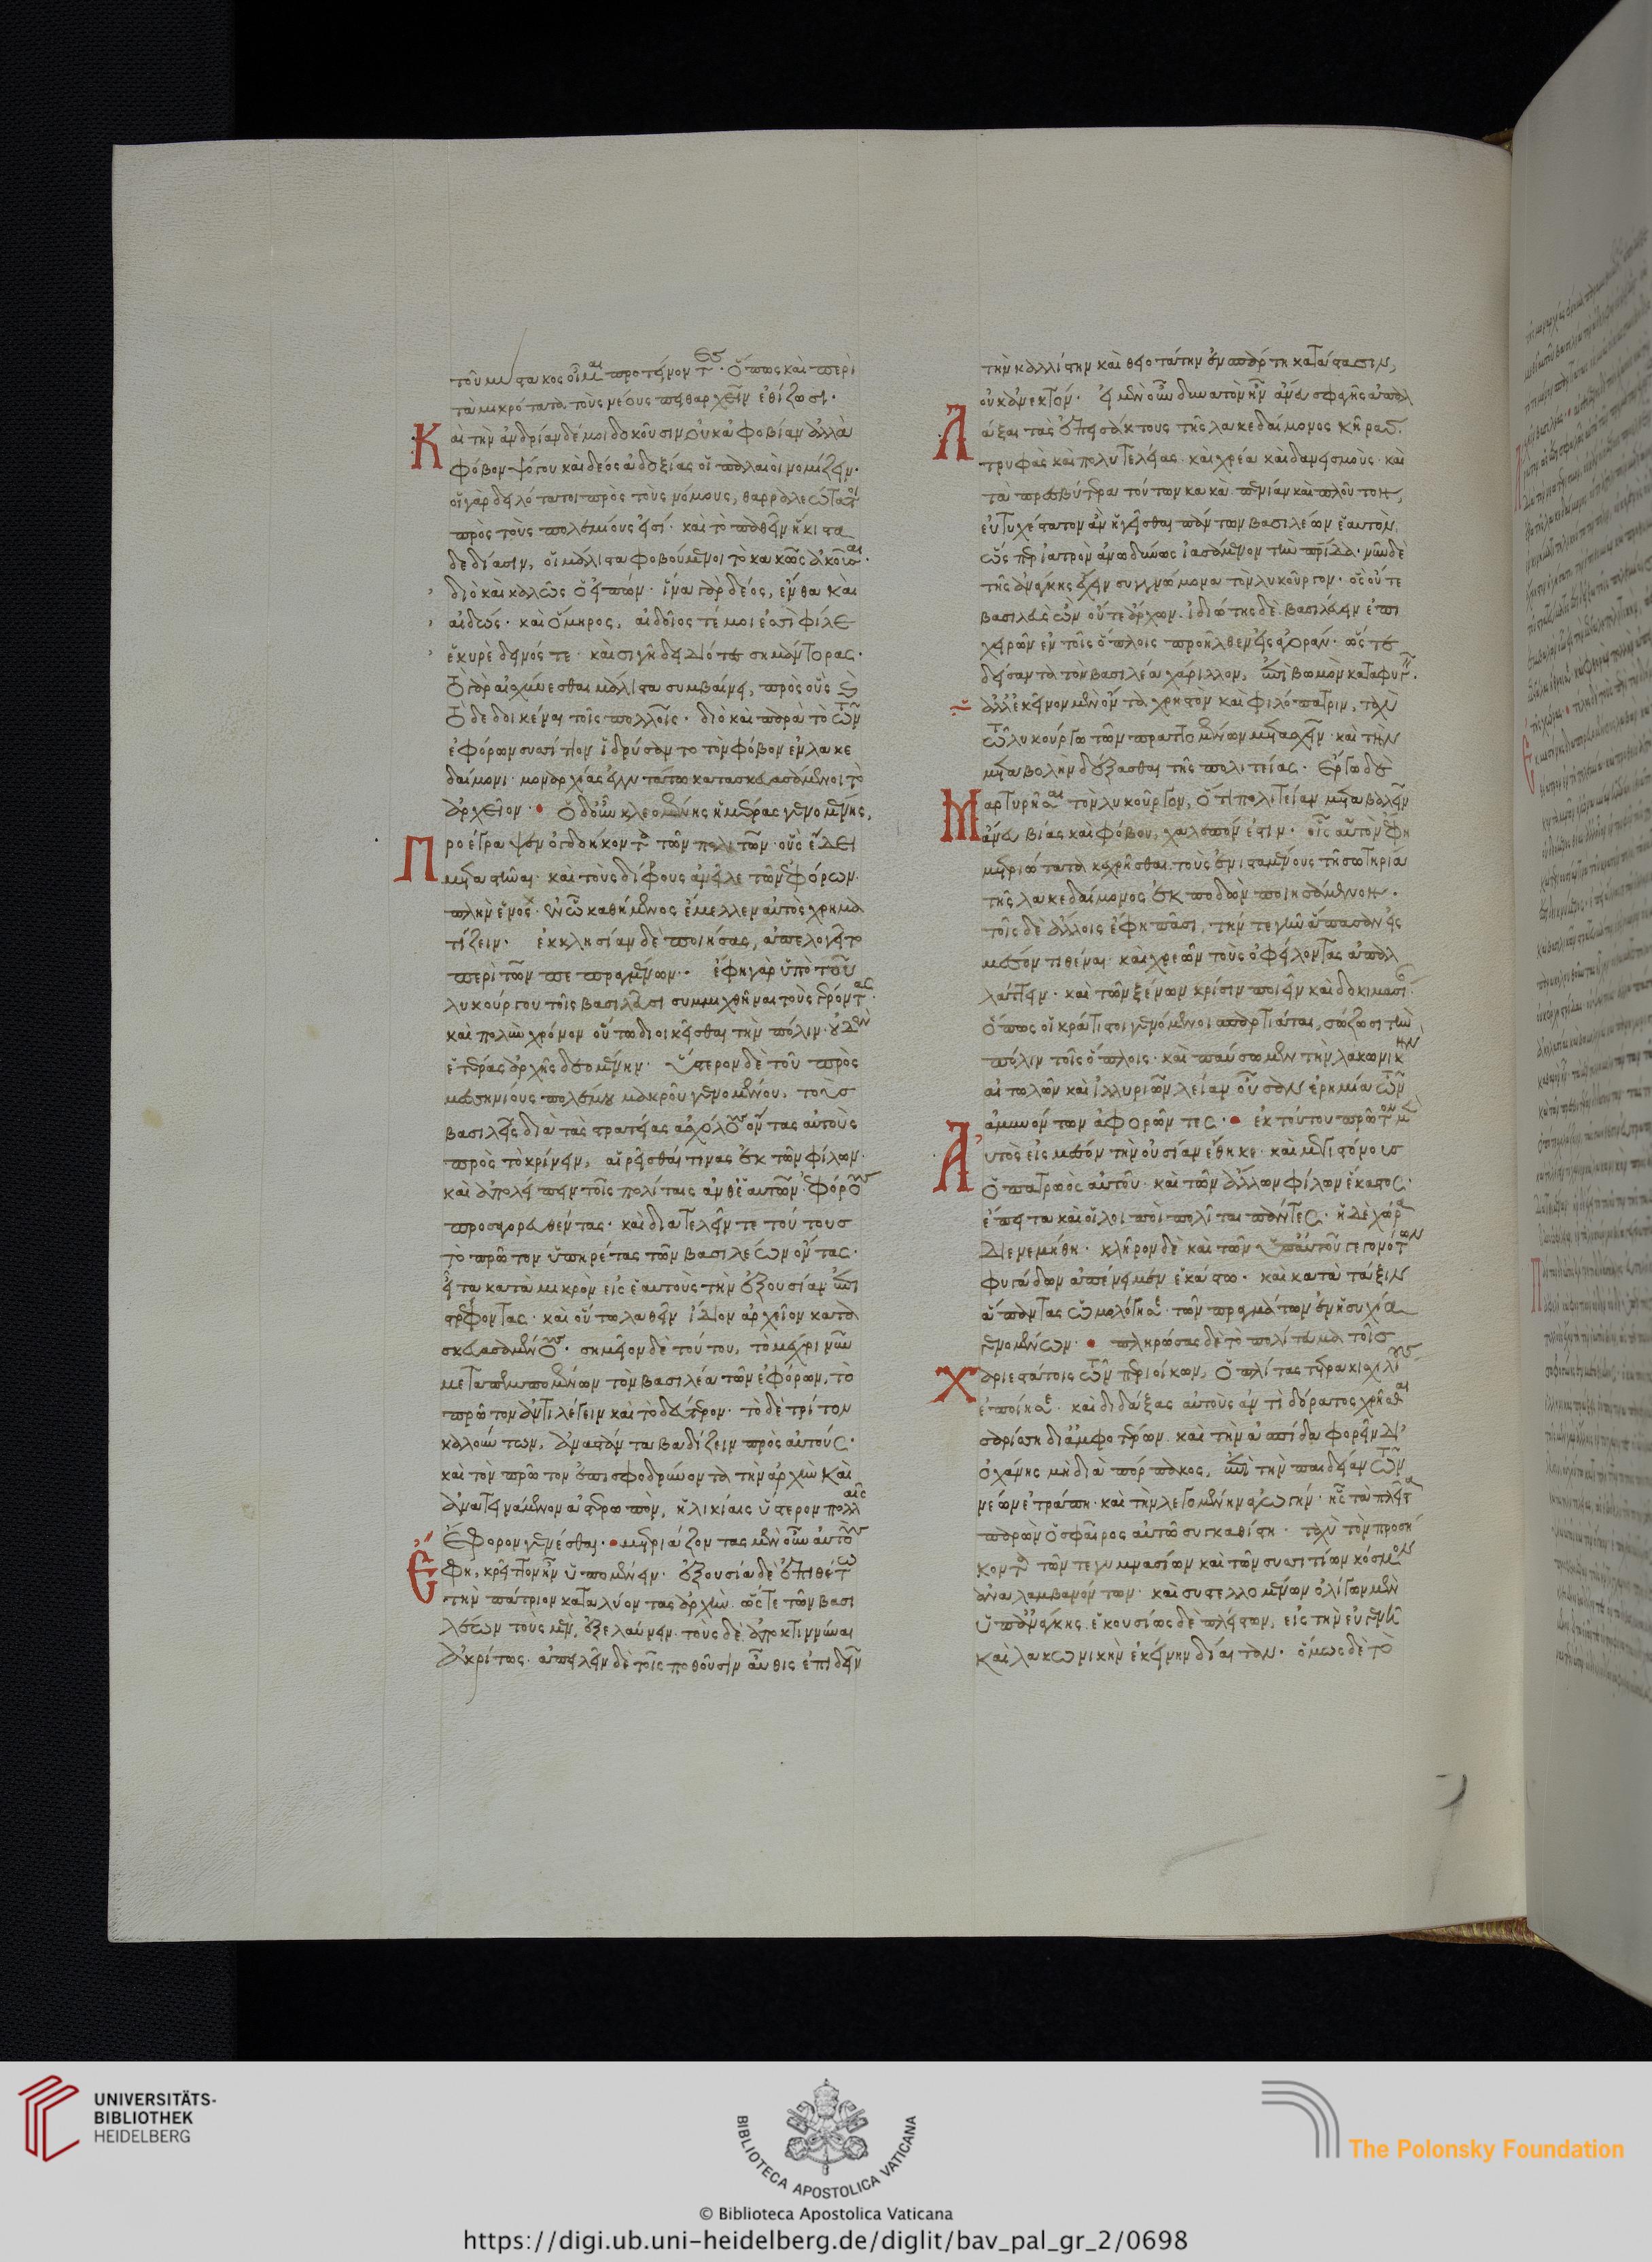 τοῦ μύστακος οἶμαι προτείνοντες· ὅπως καὶ περὶ
τὰ μικρότατα τοὺς νέους πειθαρχεῖν ἐθίζωσι.
Καὶ τὴν ἀνδρίαν δέ μοι δοκοῦσιν οὐκ ἀφοβίαν ἀλλὰ
φόβον ψόγου καὶ δέος ἀδοξίας οἱ παλαιοὶ νομίζειν·
οἱ γὰρ δειλότατοι πρὸς τοὺς νόμους, θαρραλεώτατοι
πρὸς τοὺς πολεμίους εἰσί· καὶ τὸ παθεῖν ἥκιστα
δεδίασιν, οἱ μάλιστα φοβούμενοι τὸ κακῶς ἀκοῦσαι·
διὸ καὶ καλῶς ὁ εἰπών· ἵνα γὰρ δέος, ἔνθα καὶ
αἰδώς· καὶ ὅμηρος, αἰδοῖός τέ μοι ἐσσὶ φίλε
ἑκυρὲ δεινός τε· καὶ σιγῇ δειδιότες σημάντορας·
τὸ γὰρ αἰσχύνεσθαι μάλιστα συμβαίνει, πρὸς οὓς καὶ
τὸ δεδοικέναι τοῖς πολλοῖς· διὸ καὶ παρὰ τὸ τῶν
ἐφόρων συσσίτιον ἱδρύσαντο τὸν φόβον ἐν λακε
δαίμονι· μοναρχίας ἐγγυτάτω κατασκευασάμενοι τὸ
ἀρχεῖον· ὁ δ' οὖν κλεομένης ἡμέρας γενομένης,
Προέγραψεν ὀγδοήκοντα τῶν πολιτῶν οὓς ἔδει
μεταστῆναι· καὶ τοὺς δίφρους ἀνεῖλε τῶν ἐφόρων·
πλὴν ἑνός· ἐν ᾧ καθήμενος ἔμελλεν αὐτὸς χρημα
τίζειν· ἐκκλησίαν δὲ ποιήσας, ἀπελογεῖτο
περὶ τῶν πεπραγμένων· ἔφη γὰρ ὑπὸ τοῦ
λυκούργου τοῖς βασιλεῦσι συμμιχθῆναι τοὺς γέροντας·
καὶ πολὺν χρόνον οὕτω διοικεῖσθαι τὴν πόλιν οὐδὲν
ἑτέρας ἀρχῆς δεομένην· ὕστερον δὲ τοῦ πρὸς
μεσσηνίους πολέμου μακροῦ γενομένου, τοὺς
βασιλεῖς διὰ τὰς στρατείας ἀσχόλους ὄντας αὐτοὺς
πρὸς τὸ κρίνειν, αἱρεῖσθαί τινας ἐκ τῶν φίλων·
καὶ ἀπολείπειν τοῖς πολίταις ἀνθ' ἑαυτῶν ἐφόρους
προσαγορευθέντας· καὶ διατελεῖν τε τούτους
τὸ πρῶτον ὑπηρέτας τῶν βασιλέων ὄντας·
εἶτα κατὰ μικρὸν εἰς ἑαυτοὺς τὴν ἐξουσίαν ἐπι
στρέφοντας· καὶ οὕτω λαθεῖν ἴδιον ἀρχεῖον κατα
σκευασαμένους· σημεῖον δὲ τούτου, τὸ μέχρι νῦν
μεταπεμπομένων τὸν βασιλέα τῶν ἐφόρων, τὸ
πρῶτον ἀντιλέγειν καὶ τὸ δεύτερον· τὸ δὲ τρίτον
καλούντων, ἀναστάντα βαδίζειν πρὸς αὐτούς·
καὶ τὸν πρῶτον ἐπισφοδρύνοντα τὴν ἀρχὴν καὶ
ἀνατεινάμενον ἀστερωπὸν, ἡλικίαις ὕστερον πολλαῖς
Ἔφορον γενέσθαι· μετριάζοντας μὲν οὖν αὐτοὺς
ἔφη, κρεῖττον ἦν ὑπομένειν· ἐξουσίᾳ δὲ ἐπιθέτῳ
τὴν πάτριον καταλύοντας ἀρχὴν ὥστε τῶν βασι
λέων τοὺς μὲν, ἐξελαύνειν· τοὺς δὲ ἀποκτιννύναι
ἀκρίτως· ἀπειλεῖν δὲ τοῖς ποθοῦσιν αὖθις ἐπιδεῖν
τὴν καλλίστην καὶ θειοτάτην ἐν σπάρτῃ κατάστασιν,
οὐκ ἀνεκτόν· εἰ μὲν οὖν δυνατὸν ἦν ἄνευ σφαγῆς ἀπαλ
λάξαι τὰς ἐπεισάκτους τῆς λακεδαίμονος κῆρας
τρυφὰς καὶ πολυτελείας· καὶ χρέα καὶ δανεισμοὺς· καὶ
τὰ πρεσβύτερα τούτων κακὰ πενίαν καὶ πλοῦτον,
εὐτυχέστατον ἂν ἡγεῖσθαι πάντων βασιλέων ἑαυτὸν,
ὥσπερ ἰατρὸν ἀνωδύνως ἰασάμενον τὴν πατρίδα· νῦν δὲ
τῆς ἀνάγκης ἔχειν συγγνώμονα τὸν λυκοῦργον· ὃς οὔτε
βασιλεὺς ὢν οὔτε ἄρχων· ἰδιώτης δὲ βασιλεύειν ἐπι
χειρῶν ἐν τοῖς ὅπλοις προῆλθεν εἰς ἀγοράν· ὥστε
δείσαντα τὸν βασιλέα χάριλλον, ἐπὶ βωμὸν καταφυγεῖν·
ἀλλ' ἐκεῖνον μὲν ὄντα χρηστὸν καὶ φιλόπατριν, ταχὺ
τῷ λυκούργῳ τῶν πραττομένων μετασχεῖν· καὶ τὴν
μεταβολὴν δέξασθαι τῆς πολιτείας· ἔργῳ δὲ
Μαρτυρῆσαι τὸν λυκοῦργον, ὅτι πολιτείαν μεταβαλεῖν
ἄνευ βίας καὶ φόβου, χαλεπόν ἐστιν· οἷς αὐτὸν ἔφη
μετριώτατα κεχρῆσθαι τοὺς ἐνισταμένους τῇ σωτηρίᾳ
τῆς λακεδαίμονος ἐκποδὼν ποιησάμενον.
τοῖς δὲ ἄλλοις ἔφη πᾶσι, τήν τε γῆν ἅπασαν εἰς
μέσον τιθέναι καὶ χρεῶν τοὺς ὀφείλοντας ἀπαλ
λάττειν· καὶ τῶν ξένων κρίσιν ποιεῖν καὶ δοκιμασί
ὅπως οἱ κράτιστοι γενόμενοι σπαρτιᾶται, σώζωσι τὴν
πόλιν τοῖς ὅπλοις· καὶ παύσωμεν τὴν λακωνικὴν
αἰτωλῶν καὶ ἰλλυριῶν λείαν οὖσαν ἐρημίᾳ τῶν
ἀμυνόντων ἀφορῶντες· ἐκ τούτου πρῶτον μὲν
Αὐτὸς εἰς μέσον τὴν οὐσίαν ἔθηκε· καὶ μεγιστόνους
ὁ πατρωὸς αὐτοῦ· καὶ τῶν ἄλλων φίλων ἕκαστος·
ἔπειτα καὶ οἱ λοιποὶ πολῖται πάντες· ἡ δὲ χώρα
διενεμήθη· κλῆρον δὲ καὶ τῶν ὑπ' αὐτοῦ γεγονότων
φυγάδων ἀπένειμεν ἑκάστῳ· καὶ κατὰ τάξιν
ἅπαντας ὡμολόγησε τῶν πραγμάτων ἐν ἡσυχίᾳ
γενομένων· πληρώσας δὲ τὸ πολίτευμα τοῖς
Χαριεστάτοις τῶν περιοίκων, ὁπλίτας τετρακισχιλίους
ἐποίησε· καὶ διδάξας αὐτοὺς ἀντὶ δόρατος χρῆσθαι
σαρίσῃ δι' ἀμφοτέρων καὶ τὴν ἀσπίδα φορεῖν δι'
ὀχάνης μὴ διὰ πόρπακος, ἐπὶ τὴν παιδείαν τῶν
νέων ἐτράπη· καὶ τὴν λεγομένην ἀγωγήν· ἧς τὰ πλεῖστα
παρὼν ὁ σφαῖρος αὐτῷ συγκαθίστη· ταχὺ τὸν προσή
κοντα τῶν τε γυμνασίων καὶ τῶν συσσιτίων κόσμον
ἀναλαμβανόντων· καὶ συστελλομένων ὀλίγων μὲν
ὑπ' ἀνάγκης· ἑκουσίως δὲ πλείστων, εἰς τὴν εὐτελῆ
καὶ λακωνικὴν ἐκείνην δίαιταν· ὅμως δὲ τὸ
UNIVERSITÄTS-
BIBLIOTHEK
HEIDELBERG
BIBLIOTECA APOSTOLICA VATICANA
The Polonsky Foundation
© Biblioteca Apostolica Vaticana
https://digi.ub.uni-heidelberg.de/diglit/bav_pal_gr_2/0698